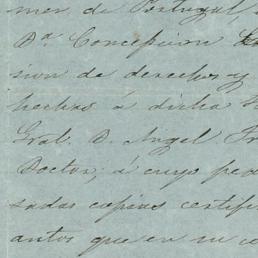 mer de Portugal,
Da. Concepcion
sion de derechos y
hechas á dicha
Gral. D. Angel
Doctor; á cuyo
sadas copias certifi
antos que en su